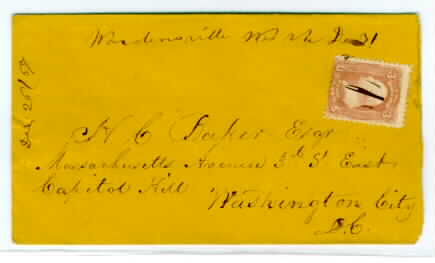 Wardensville W Va Dec 31
H C Baker Esqr
Massachusetts Avenue 3d St East
Capitol Hill
Washington City
D.C.